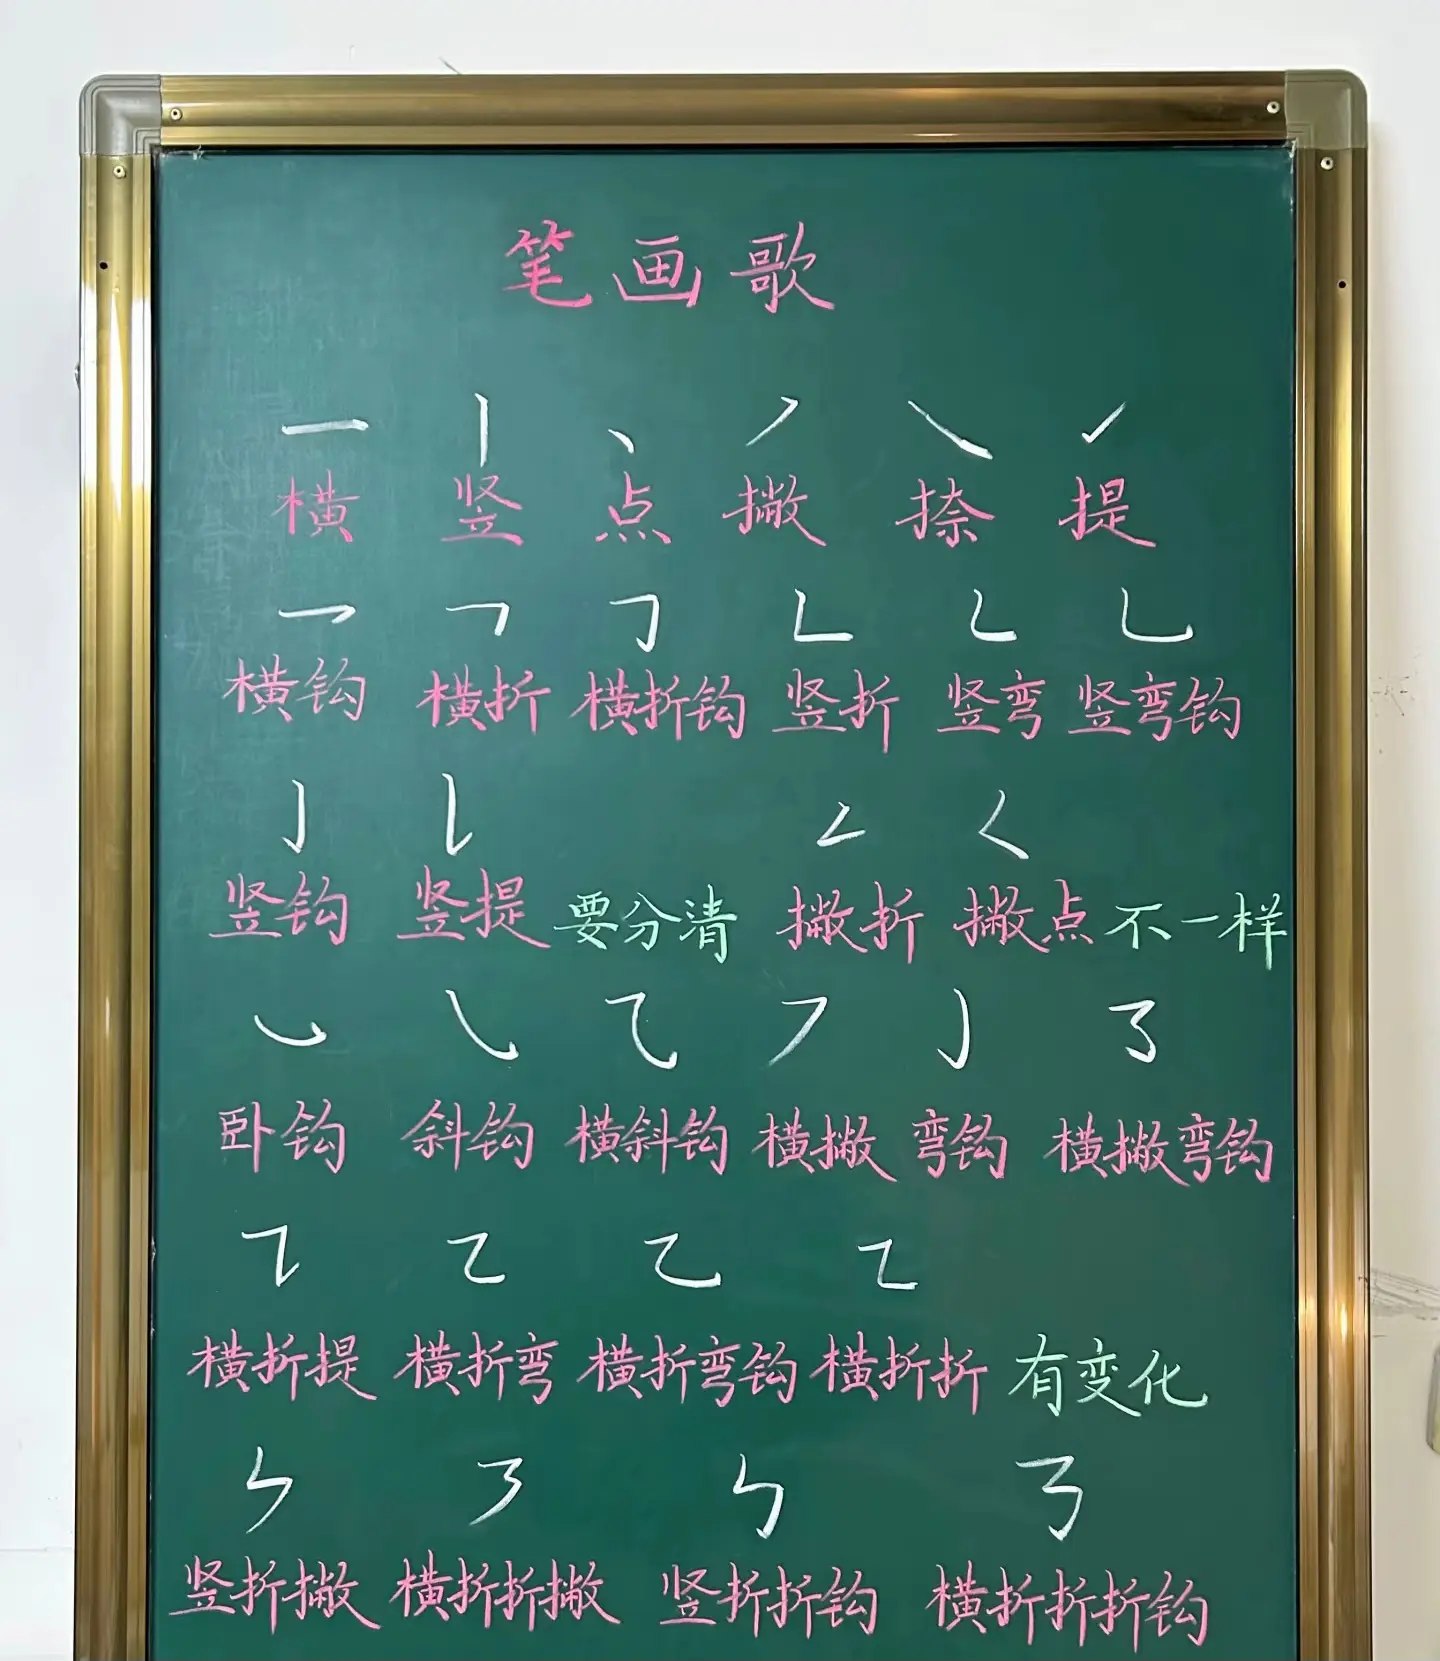 笔画歌
一 丨 丶 ノ ㇏ ㇀
横 竖 点 撇 捺 提
乛 𠃍 𠃌 𠃊 ㇄ 乚
横钩 横折 横折钩 竖折 竖弯 竖弯钩
亅 𠄌 𠃋 ㇛
竖钩 竖提 要分清 撇折 撇点 不一样
㇃ ㇂ ⺄ ㇇ ㇁ ㇌
卧钩 斜钩 横斜钩 横撇 弯钩 横撇弯钩
㇊ ㇍ ㇈ ㇅
横折提 横折弯 横折弯钩 横折折 有变化
ㄣ ㇋ ㇉ ㇡
竖折撇 横折折撇 竖折折钩 横折折折钩